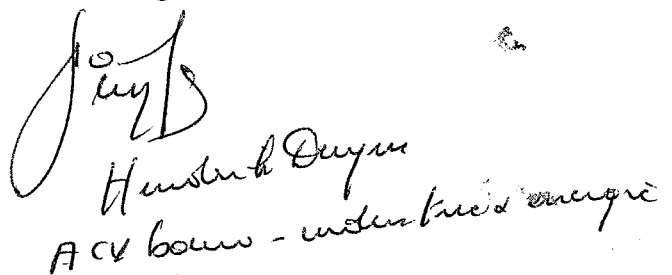 Hendrik Duym
ACV bouw - industrie & energie